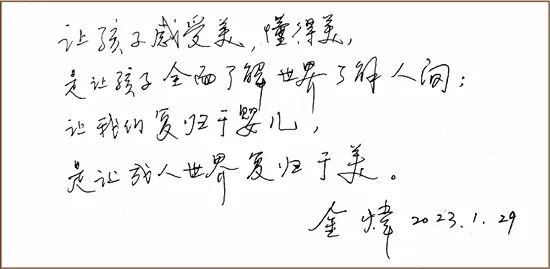 让孩子感受美,懂得美,
是让孩子全面了解世界了解人间;
让我们复归于婴儿,
是让成人世界复归于美。
金炜 2023.1.29